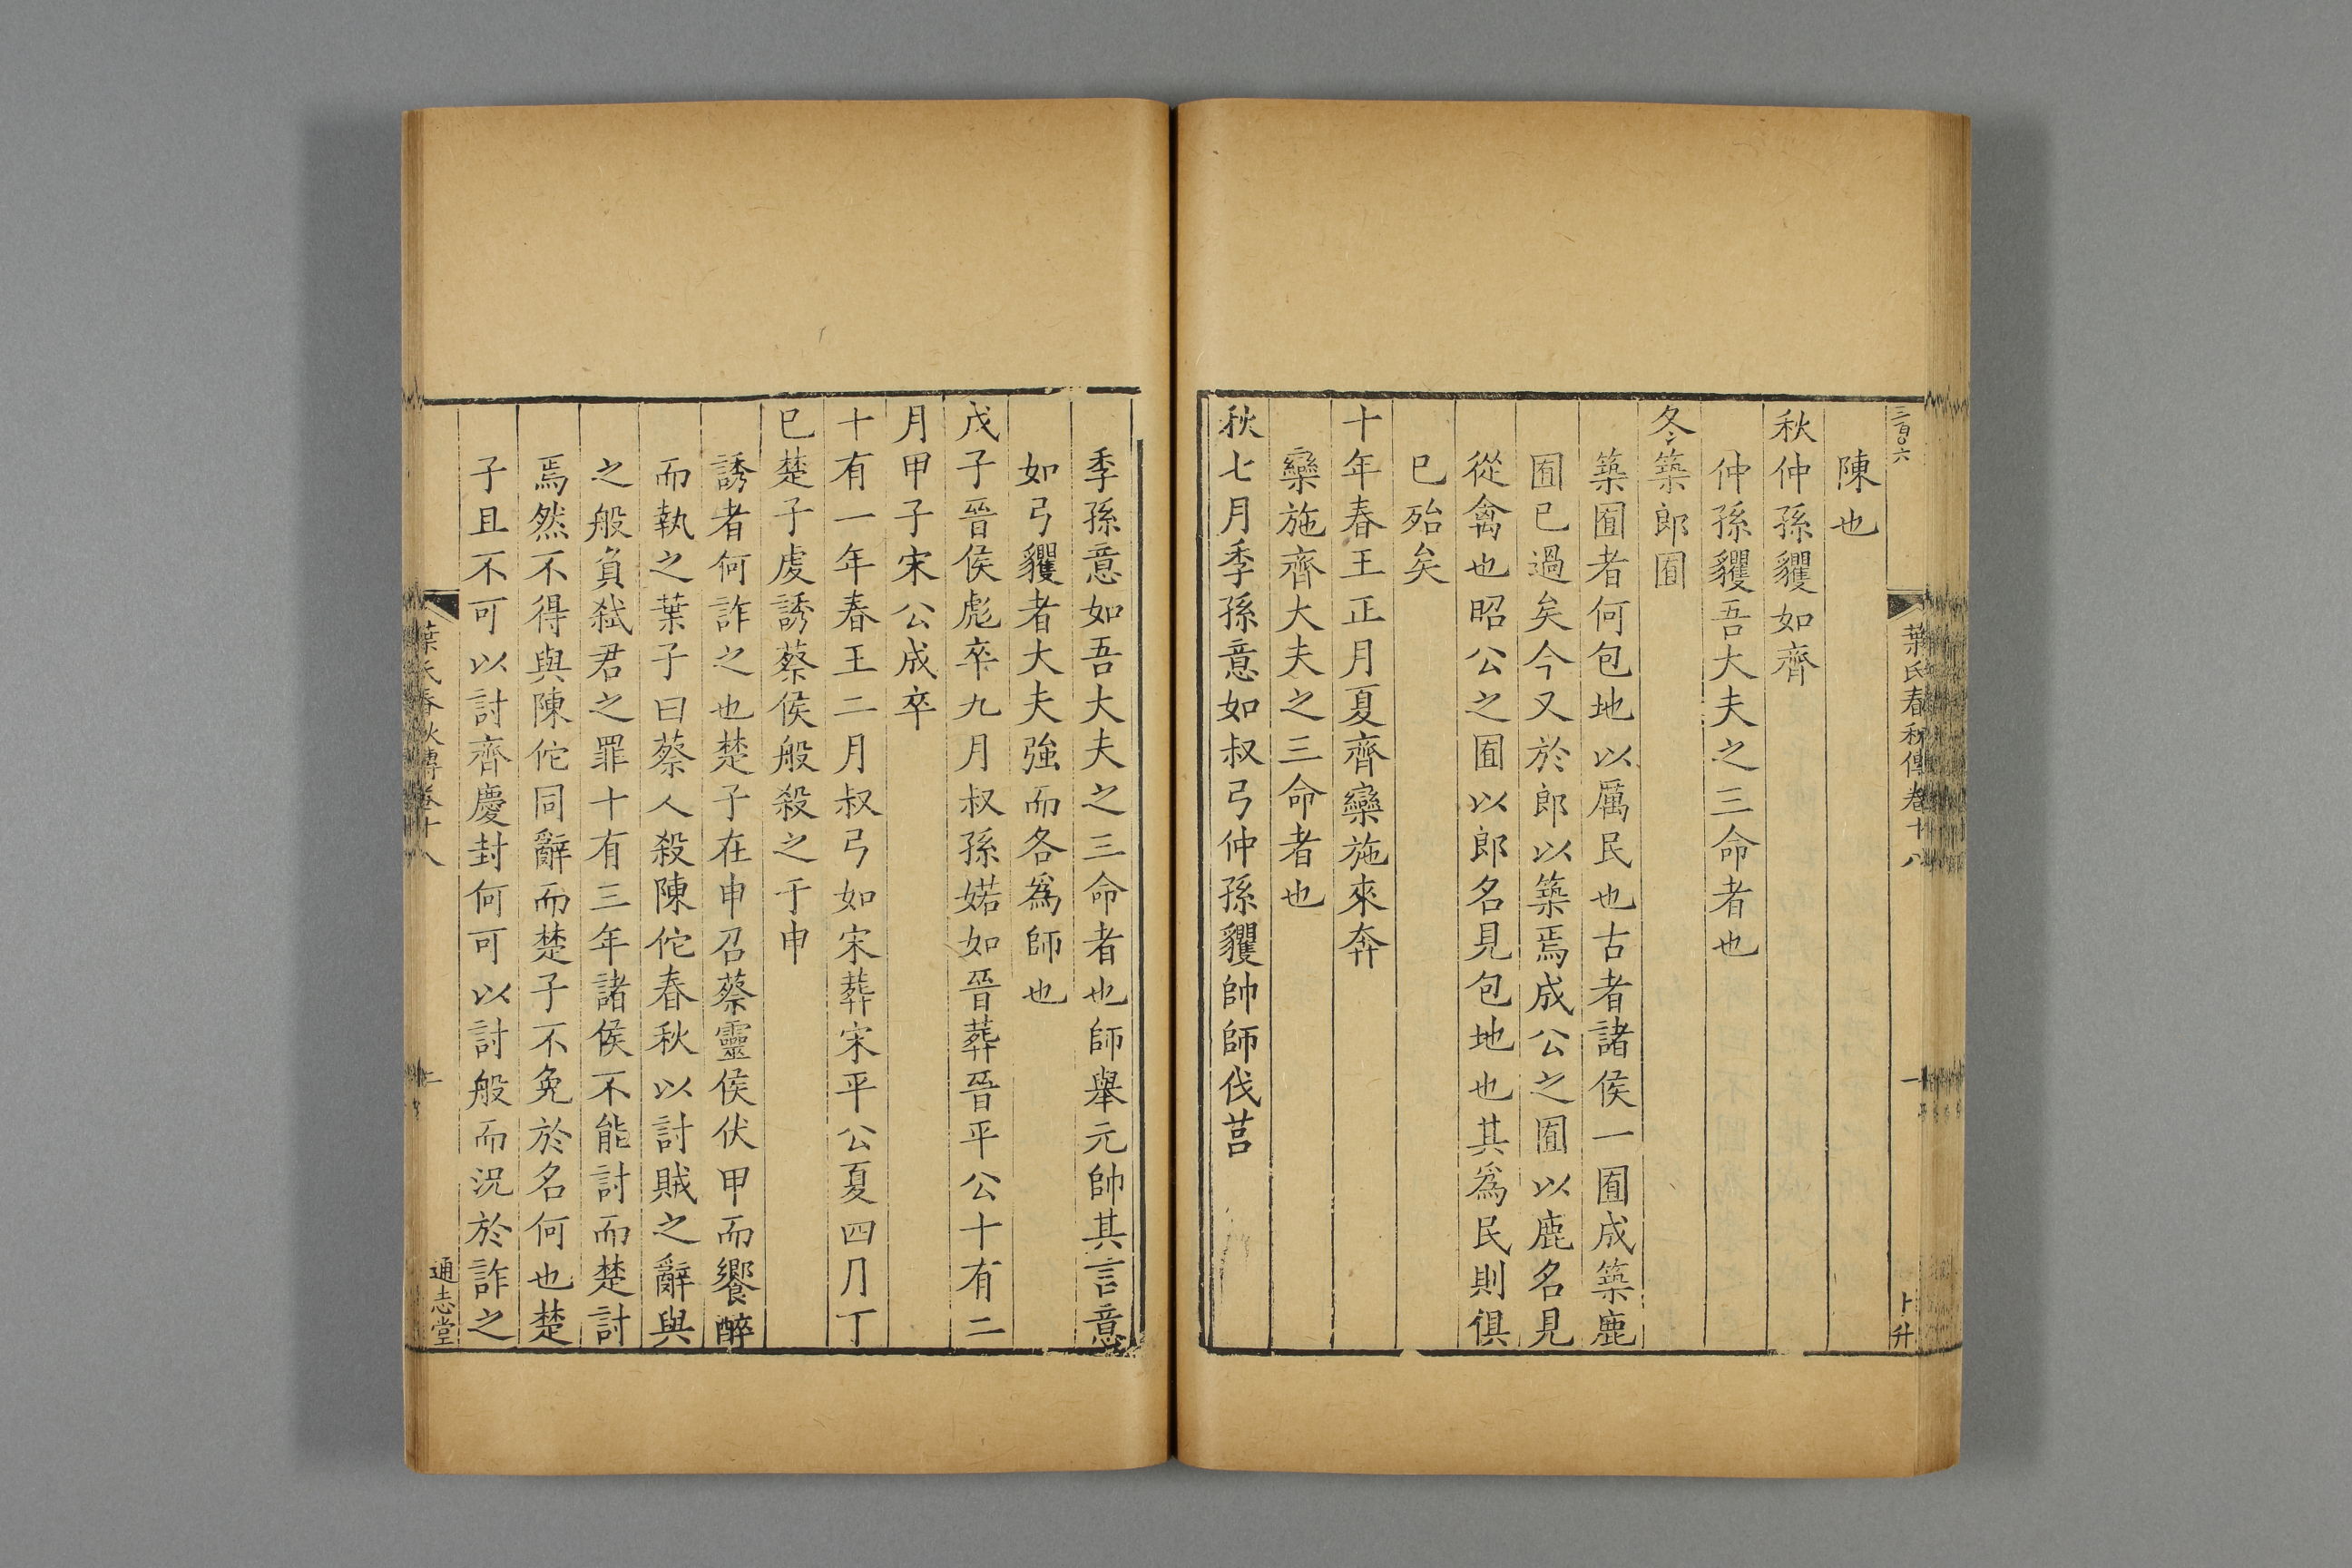 三百〇六
葉氏春秋傳卷十八
一
卜升
陳也
秋仲孫貜如齊
仲孫貜吾大夫之三命者也
冬築郎囿
築囿者何包地以厲民也古者諸侯一囿成築鹿
囿已過矣今又於郎以築焉成公之囿以鹿名見
從禽也昭公之囿以郎名見包地也其爲民則俱
已殆矣
十年春王正月夏齊欒施來奔
欒施齊大夫之三命者也
秋七月季孫意如叔弓仲孫貜帥師伐莒
季孫意如吾大夫之三命者也師舉元帥其言意
如弓貜者大夫強而各爲師也
戊子晉侯彪卒九月叔孫婼如晉葬晉平公十有二
月甲子宋公成卒
十有一年春王二月叔弓如宋葬宋平公夏四月丁
巳楚子虔誘蔡侯般殺之于申
誘者何詐之也楚子在申召蔡靈侯伏甲而饗醉
而執之葉子曰蔡人殺陳佗春秋以討賊之辭與
之般負弑君之罪十有三年諸侯不能討而楚討
焉然不得與陳佗同辭而楚子不免於名何也楚
子且不可以討齊慶封何可以討般而況於詐之
葉氏春秋傳卷十八
通志堂